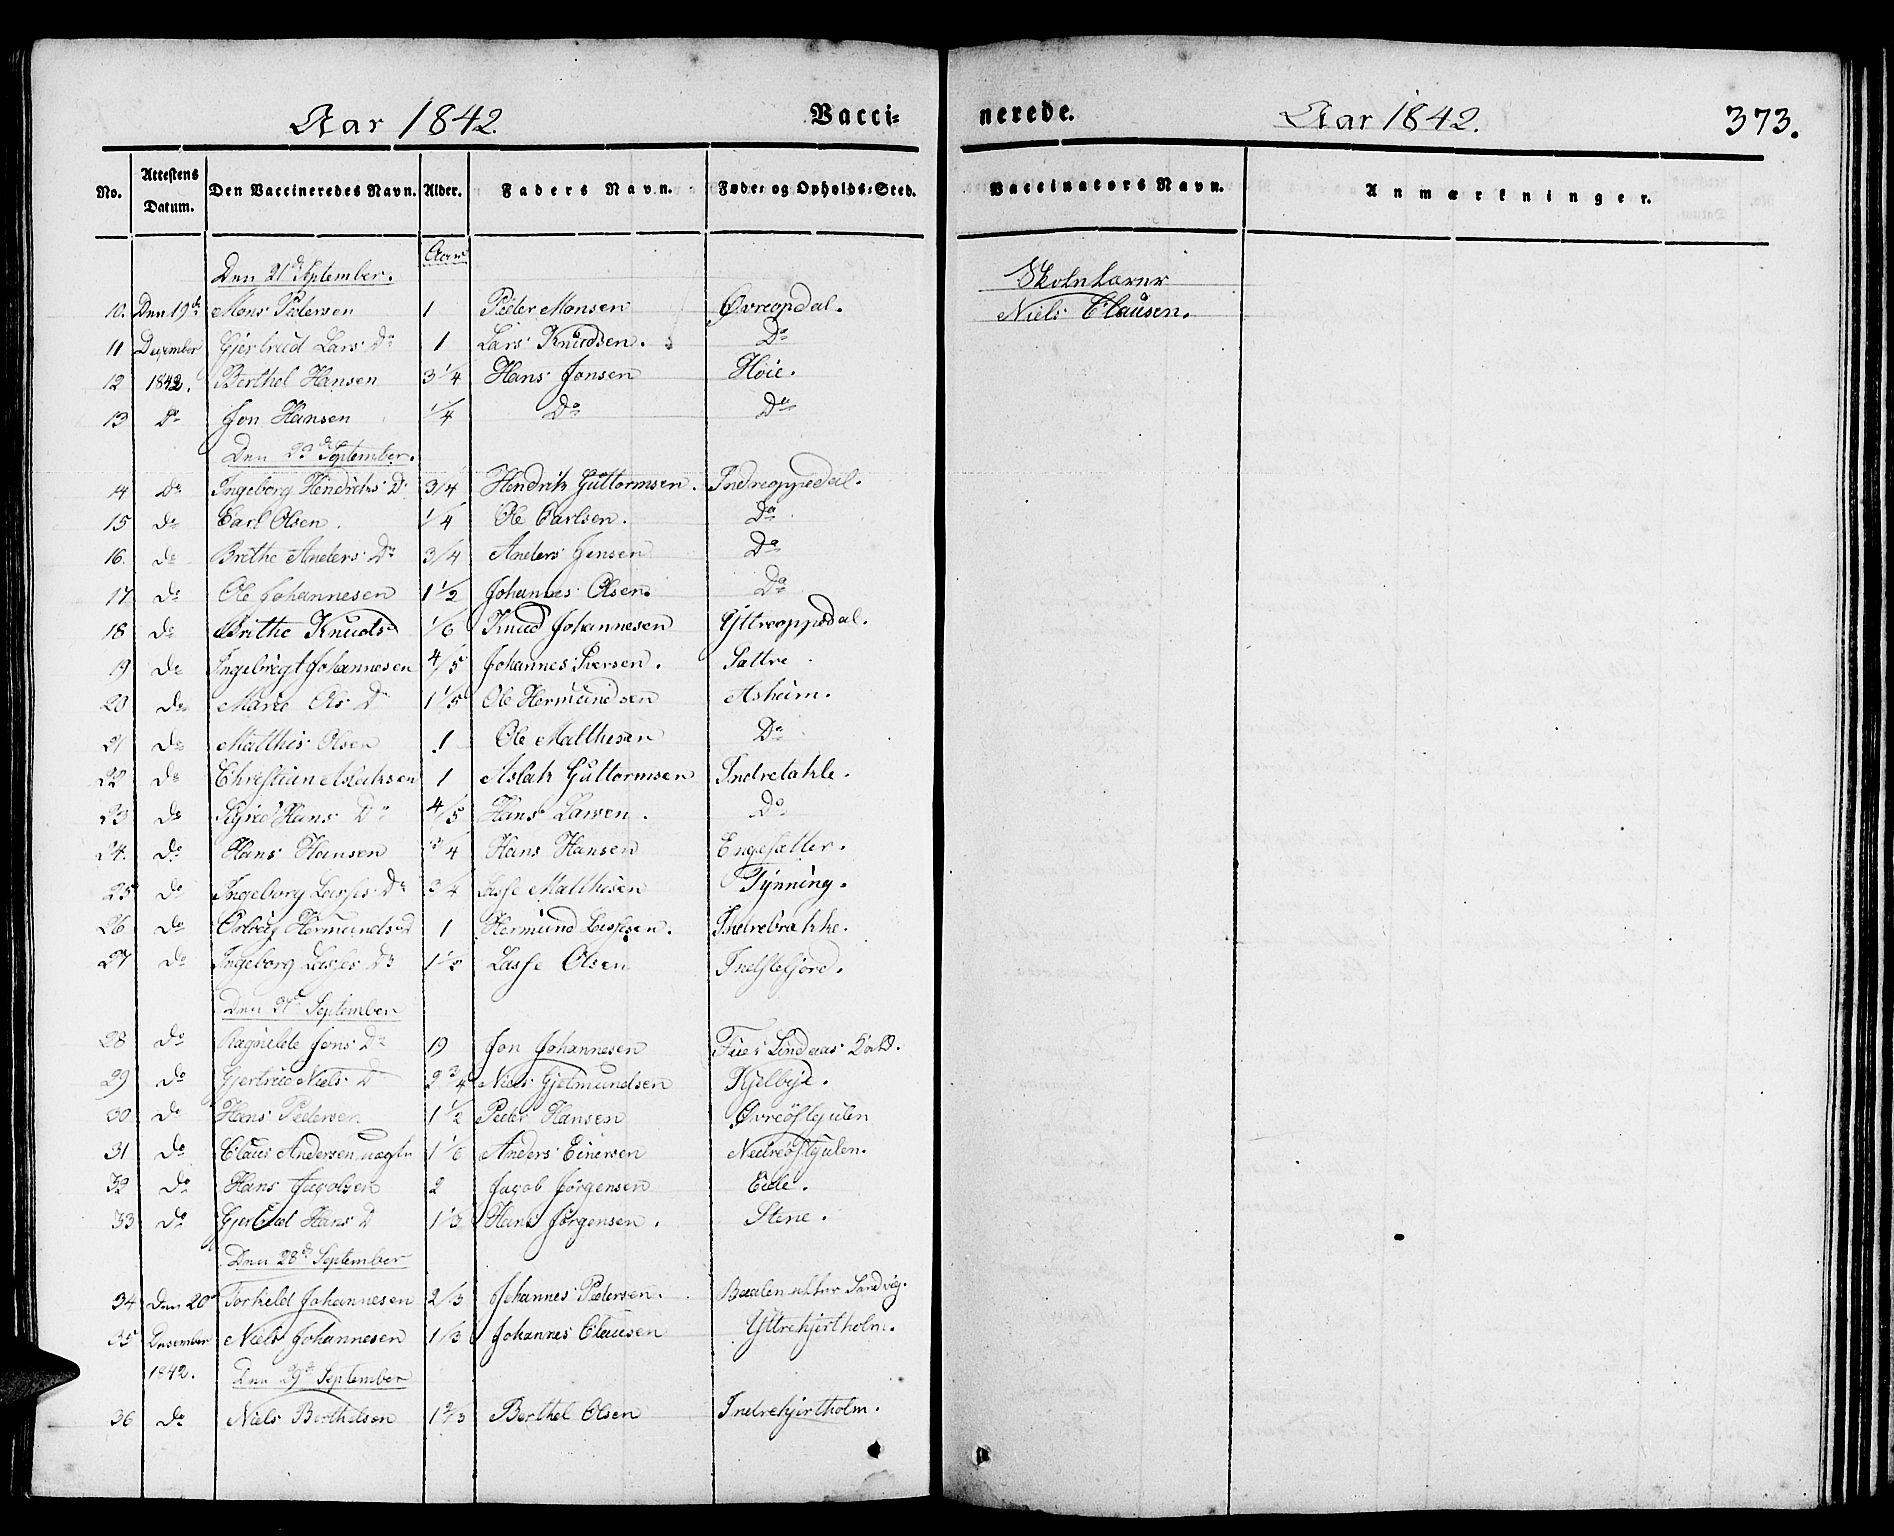 Aar 1842. Vaccinerede. Aar 1842. 373.
No. Attestens Datum. Den Vaccineredes Navn. Alder. Faders Navn. Føde- og Opholds-Sted. Vaccinators Navn. Anmærkninger.
Aar
Den 21de September. Skolelærer
10. Den 19de Mons Pedersen 1 Peder Monsen Øvreopdal. Niels Clausen.
11 December Gjertrud Lars Dr 1 Lars Knudsen. Do
12 1842. Berthel Hansen 3 1/4 Hans Jonsen Høie.
13 Do Jon Hansen 1/4 Do Do
Den September.
14 Do Ingeborg Hendriks D 3/4 Hendrik Guttormsen. Indreoppedal.
15 Do Carl Olsen. 1/4 Ole Carlsen. Do
16. Do Brithe Anders Dr 3/4 Anders Jensen Do
17 Do Ole Johannesen 1 1/2 Johannes Olsen. Do
18 Do Brithe Knuds D 1/6 Knud Johannesen Yttreoppedal.
19 Do Ingebrigt Johannesen 4/5 Johannes Iversen. Sættre
20 Do Marie Ols Dr 1 1/5 Ole Hermundsen Asheim.
21 Do Matthis Olsen 1 Ole Matthesen Do
22 Do Christian Aslaksen 1 Aslak Guttormsen Indretakle.
23 Do Sigrid Hans Dr 4/5 Hans Larsen. Do
24. Do Hans Hansen 3/4 Hans Hansen Engesætter.
25 Do Ingeborg Lasses Dr 3/4 Lasse Matthisen Tynning.
26 Do Hermunds D 1 Hermund Lassesen. Indrebrække.
27 Do Ingeborg Lasses Dr 1 1/2 Lasse Olsen
Den 27de September
28 Do Ragnilde Jons Dr 19 Jon Johannesen Lindaas
29 Do Gjertrud Niels D 2 3/4 Niels Gjelmundsen Kjelbye.
30 Do Hans Pedersen 1 1/2 Peder Hansen Øvreöstgulen
31 Do Claus Andersen uægte 1 1/6 Anders Einersen Nedreöstgulen.
32 Do Hans Jacobsen 2 Jacob Jörgensen Eide.
33 Do Gjertrud Hans D 1 1/3 Hans Jörgensen. Stene.
Den 28de September
34 Den 20de Torkeld Johannesen 2/3 Johannes Pedersen. Sandvig.
35 December Niels Johannesen 1/3 Johannes Clausen Yttrehjertholm.
1842. Den 29de September
36 Do Niels Berthelsen 1 2/3 Berthel Olsen Indrehjertholm.